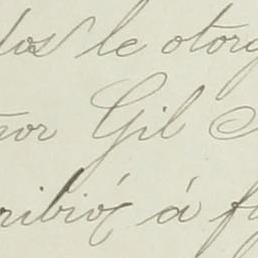 los le otorg
ñor Gil S
ribió á f